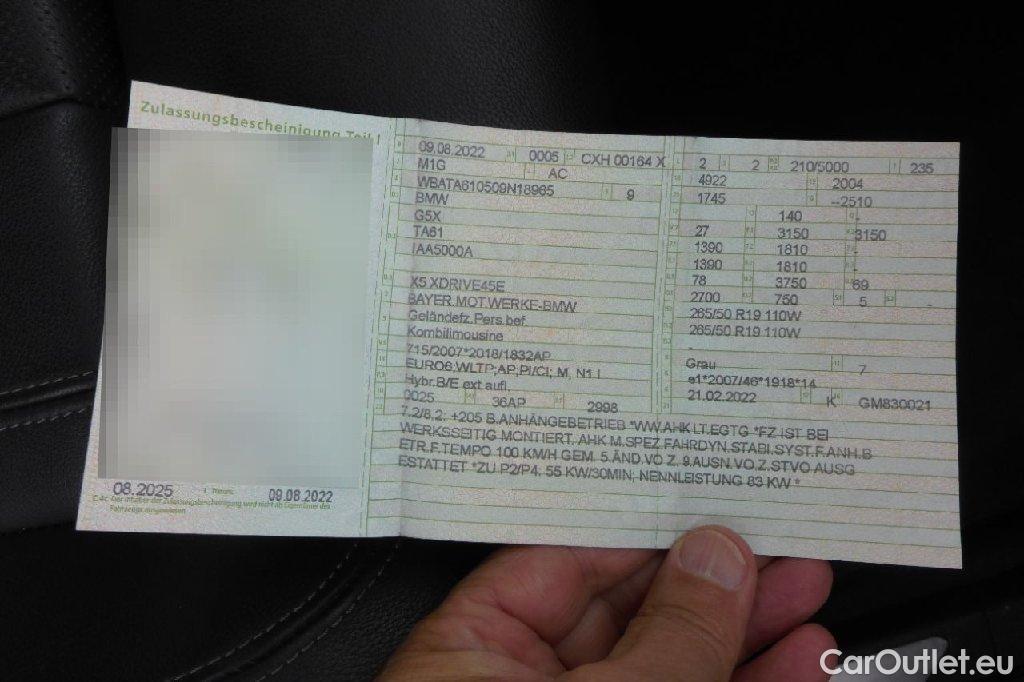 Zulassungsbescheinigung Teil I
09.08.2022 0005 CXH 00164 X
M1G AC
WBATA610509N18965 9
BMW
G5X
TA61
IAA5000A
X5 XDRIVE45E
BAYER.MOT.WERKE-BMW
Geländefz.Pers.bef
Kombilimousine
715/2007*2018/1832AP
EURO6;WLTP;AP;PI/CI; M, N1 I
Hybr.B/E ext aufl.
0025 36AP 2998
2 2 210/5000 235
4922 2004
1745 --2510
- 140 -
27 3150 3150
1390 1810 -
1390 1810 -
78 3750 69
2700 750 5 -
265/50 R19 110W
265/50 R19 110W
-
Grau 7
e1*2007/46*1918*14
21.02.2022 K GM830021
7.2/8.2: +205 B.ANHÄNGEBETRIEB *WW.AHK LT.EGTG *FZ IST BEI
WERKSSEITIG MONTIERT. AHK M.SPEZ.FAHRDYN.STABI.SYST.F.ANH.B
ETR.F.TEMPO 100 KM/H GEM. 5.ÄND.VO Z. 9.AUSN.VO.Z.STVO AUSG
ESTATTET *ZU P2/P4: 55 KW/30MIN; NENNLEISTUNG 83 KW *
08.2025 09.08.2022
C.4c Der Inhaber der Zulassungsbescheinigung wird nicht als Eigentümer des
Fahrzeugs ausgewiesen.
CarOutlet.eu